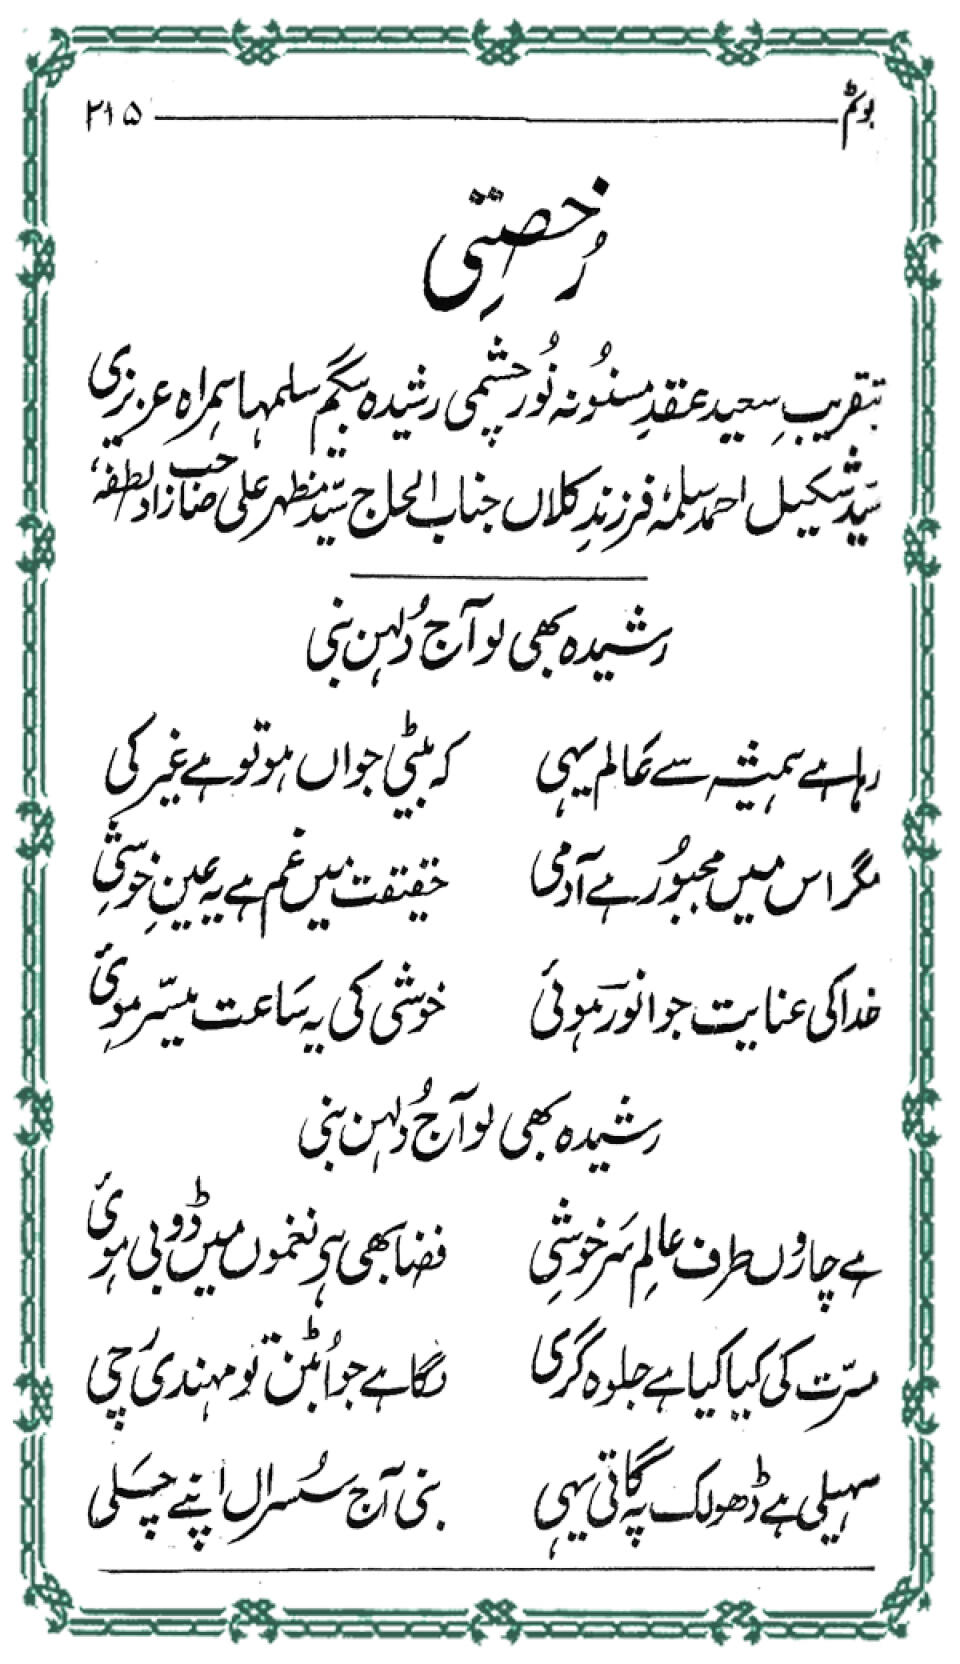 بوکم ۲۱۵
رُخصتیِ
بتقریبِ سعید عقدِ مسنُونہ نُورچشمی رشیدہ بیگم سلمہا ہمراہ عزیزی
سیّد شکیل احمد سلمہٗ فرزندِ کلاں جناب الحاج سیّد منظہر علی صاحب زاد لطفہٗ
رشیدہ بھی لو آج دُلہن بنی
رہا ہے ہمیشہ سے عَالم یہی کہ بیٹی جواں ہو تو ہے غیر کی
مگر اس میں مجبُور ہے آدمی حقیقت میں غم ہے یہ عینِ خوشی
خدا کی عنایت جو انورؔ ہوئی خوشی کی یہ سَاعت میسّر ہوئی
رشیدہ بھی لو آج دُلہن بنی
ہے چاروں طرف عالمِ سَرخوشی فضا بھی ہے نغموں میں ڈوبی ہوئی
مسرّت کی کیا کیا ہے جلوہ گری لگا ہے جو اُبٹن تو مہندی رَچی
سہیلی ہے ڈھولک پہ گاتی یہی بنی آج سُسرال اپنے چَلی